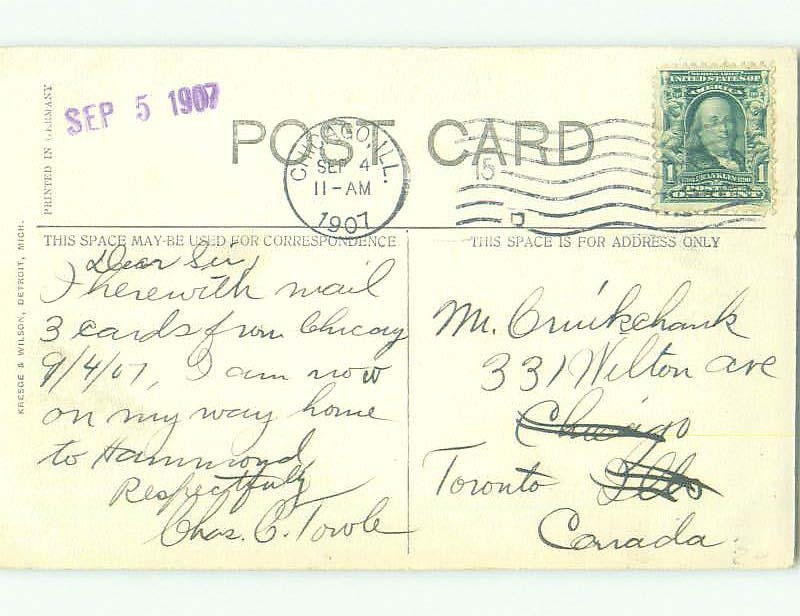 SEP 5 1907
POST CARD
CHICAGO, ILL.
SEP 4
11-AM
1907
15
D
SERIES 1902
UNITED STATES OF
AMERICA
1 1
FRANKLIN
POSTAGE
ONE CENT
PRINTED IN GERMANY
KRESGE & WILSON, DETROIT, MICH.
THIS SPACE MAY BE USED FOR CORRESPONDENCE
THIS SPACE IS FOR ADDRESS ONLY
Dear Sir,
I herewith mail
3 cards from Chicag
9/4/07, I am now
on my way home
to Hammond
Respectfully
Chas. C. Towle
Mr. Cruikchank
331 Wilton ave
Chicago
Toronto Ills
Canada.